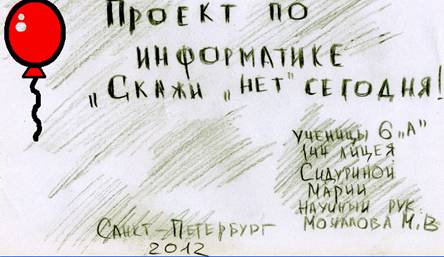 Проект по
информатике
„Скажи „нет" сегодня!
ученицы 6 „А"
144 лицея
Сидуриной
Марии
научный рук.
Мочалова М.В
Санкт-Петербург
2012